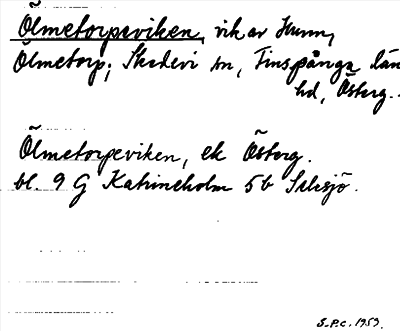 Ölmetorpeviken, vik av Hunn,
Ölmetorp, Skedevi sn, Finspånga län
hd, Österg.
Ölmetorpeviken, ek Österg.
bl. 9 G Katrineholm 5b
S.P.C. 1959.